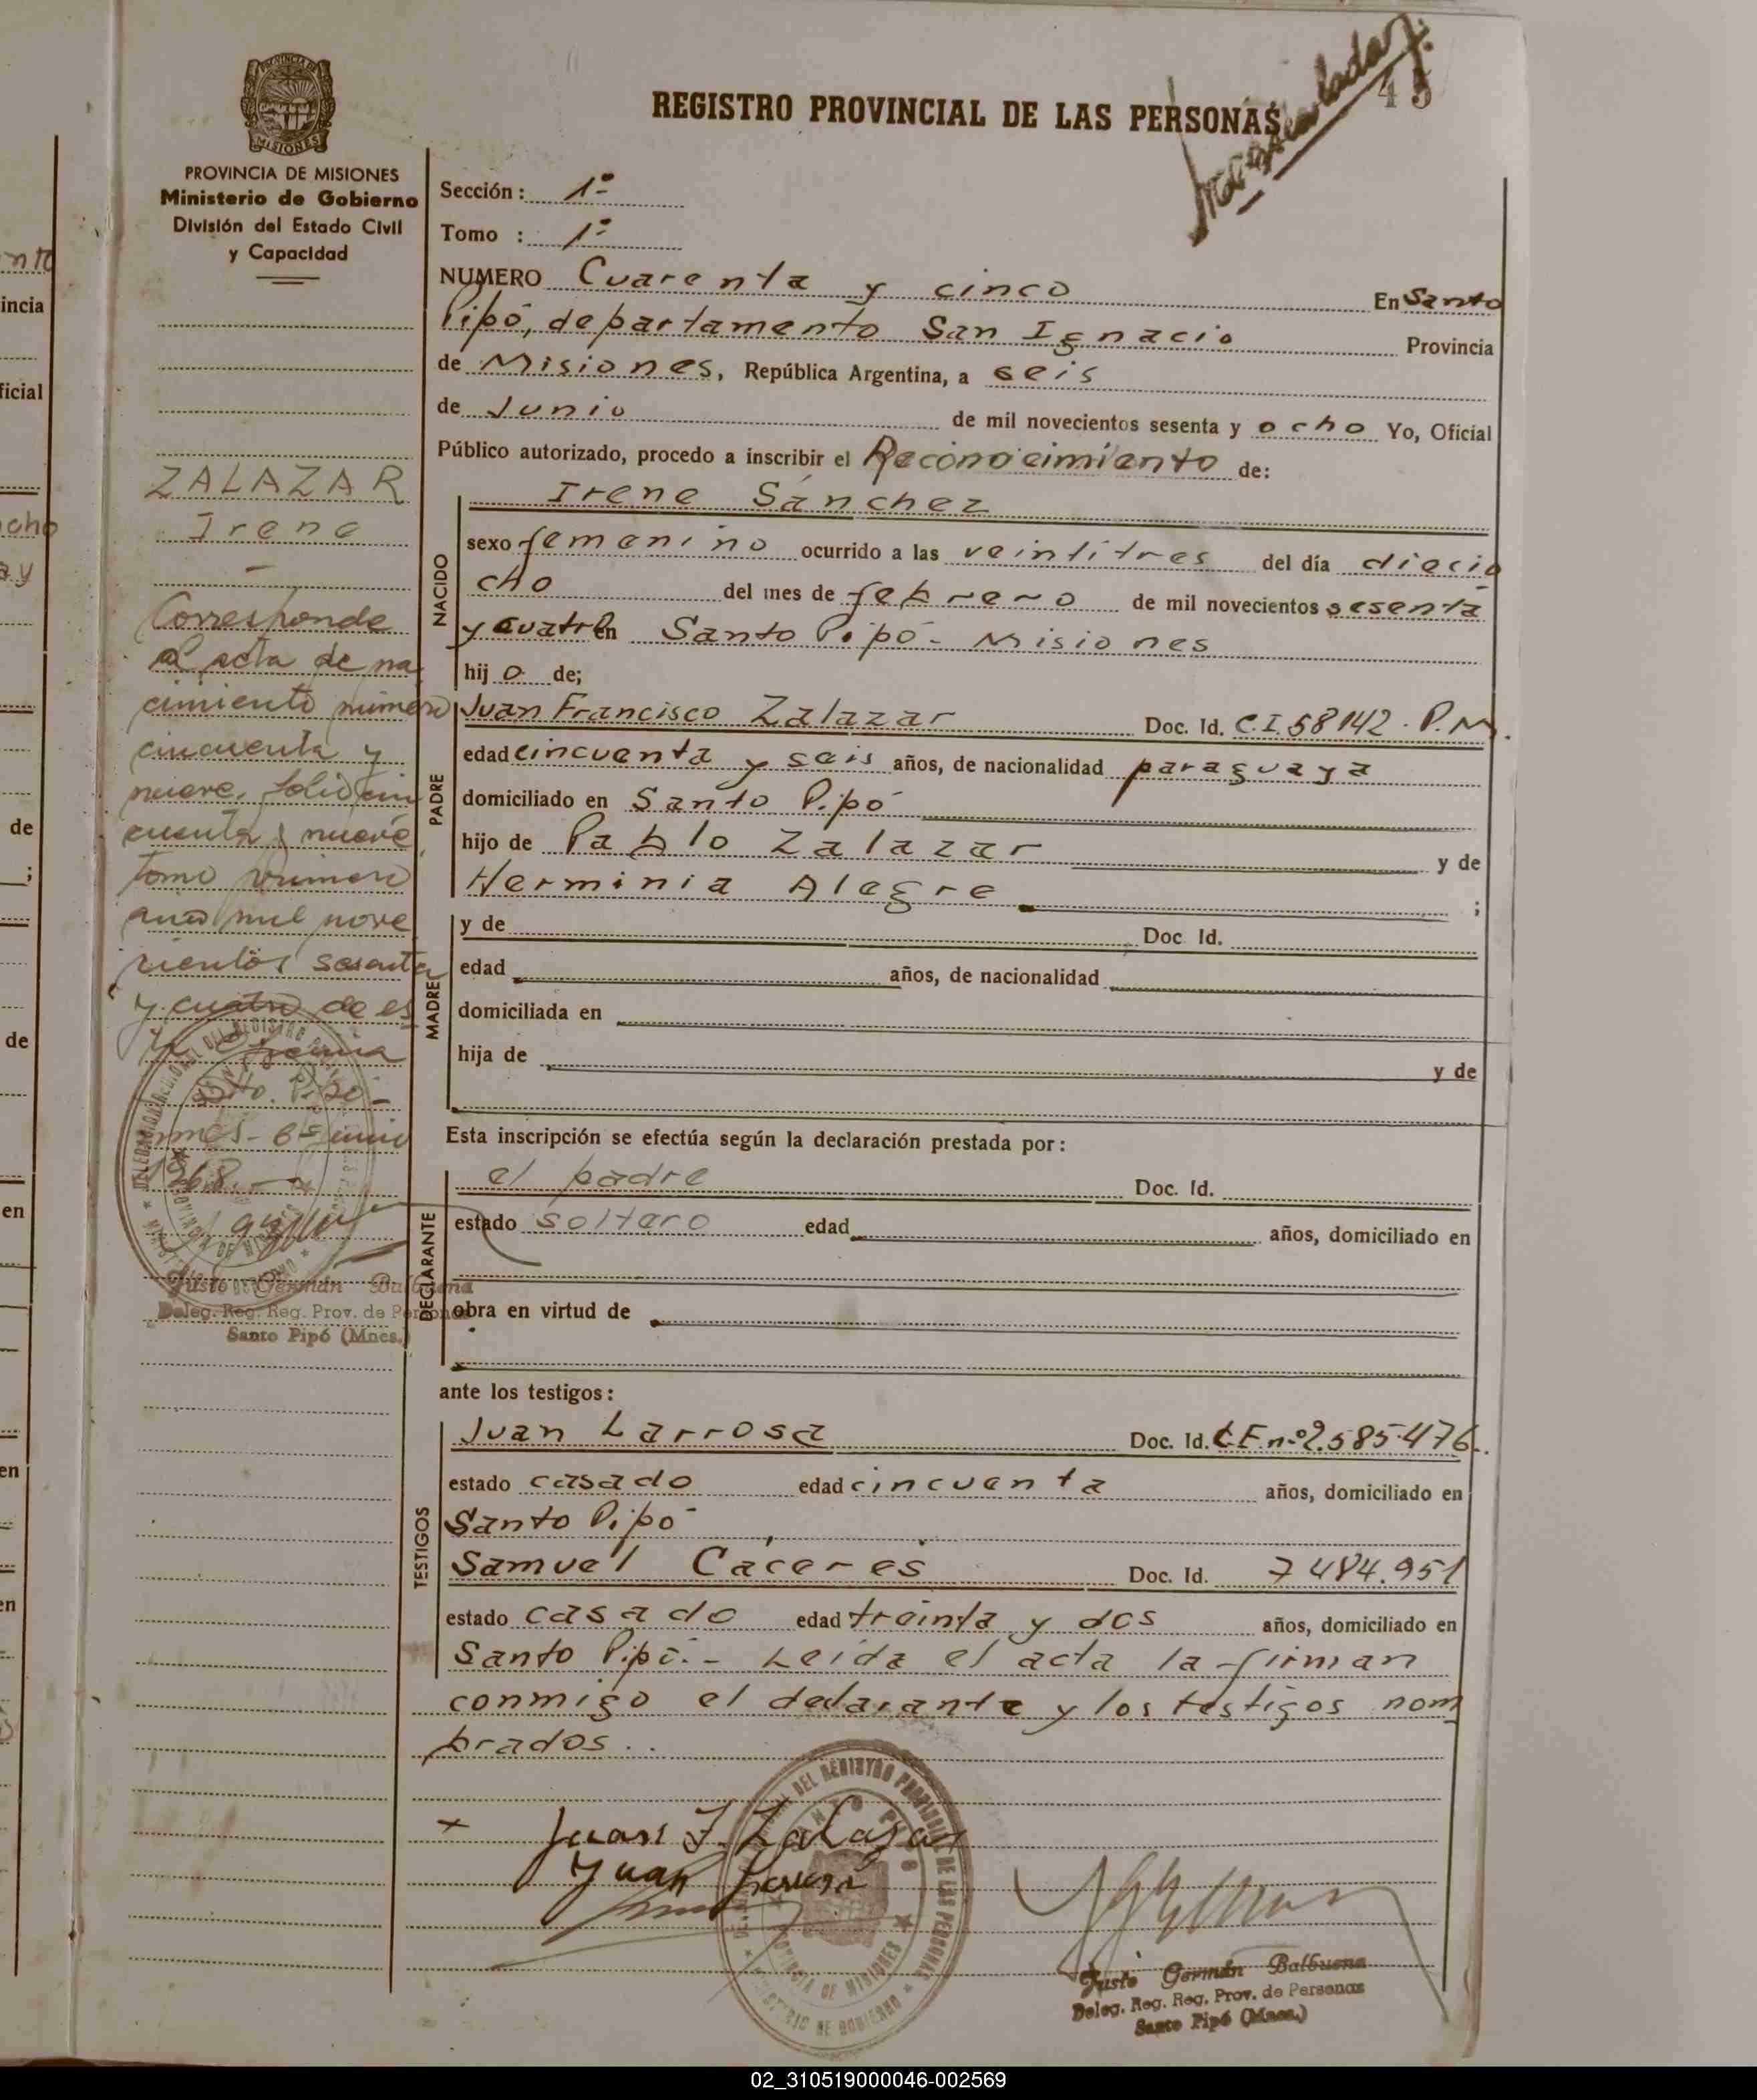 REGISTRO PROVINCIAL DE LAS PERSONAS
45
PROVINCIA DE MISIONES
Ministerio de Gobierno
División del Estado Civil
y Capacidad
Sección: 1º
Tomo : 1º
NUMERO Cuarenta y cinco En Santo
Pipó, departamento San Ignacio Provincia
de Misiones, República Argentina, a seis
de Junio de mil novecientos sesenta y ocho Yo, Oficial
Público autorizado, procedo a inscribir el Reconocimiento de:
NACIDO
Irene Sánchez
sexo femenino ocurrido a las veintitres del día diecio
cho del mes de febrero de mil novecientos sesenta
y cuatro en Santo Pipó - Misiones
hij o de;
PADRE
Juan Francisco Zalazar Doc. Id. C.I. 58142. P.M.
edad cincuenta y seis años, de nacionalidad paraguaya
domiciliado en Santo Pipó
hijo de Pablo Zalazar y de
Herminia Alegre ;
MADRE
y de Doc Id.
edad años, de nacionalidad
domiciliada en
hija de y de
Esta inscripción se efectúa según la declaración prestada por:
DECLARANTE
el padre Doc. Id.
estado soltero edad años, domiciliado en
obra en virtud de
ante los testigos:
TESTIGOS
Juan Larrosa Doc. Id. L.E. nº 2.585.476.
estado casado edad cincuenta años, domiciliado en
Santo Pipó
Samuel Cáceres Doc. Id. 7484.951
estado casado edad treinta y dos años, domiciliado en
Santo Pipó.- Leída el acta la firman
conmigo el declarante y los testigos nom
brados..
ZALAZAR
Irene
-
Corresponde
al acta de na
cimiento número
cincuenta y
nueve, folio cin
cuenta y nueve
tomo primero
año mil nove
cientos sesenta
y cuatro de es
ta Oficina
Sto. Pipó-
mes - 6 junio
1968.-
Justo Germán Balbuena
Deleg. Reg. Reg. Prov. de Personas
Santo Pipó (Mnes.)
+ Juan F. Zalazar
Juan Larrosa
DEL REGISTRO PROVINCIAL DE LAS PERSONAS
SANTO PIPO
PROVINCIA DE MISIONES
MINISTERIO DE GOBIERNO
Justo Germán Balbuena
Deleg. Reg. Reg. Prov. de Personas
Santo Pipó (Mnes.)
02_310519000046-002569